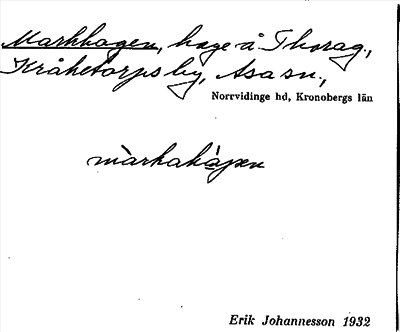 Markhagen, hage å Thorag.,
Kråketorps by, Asa sn.,
Norrvidinge hd, Kronobergs län
màrkahá̱gen
Erik Johannesson 1932